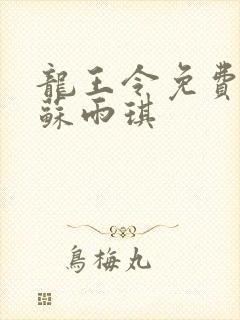 龍王令免費
蘇雨琪
鳥梅丸